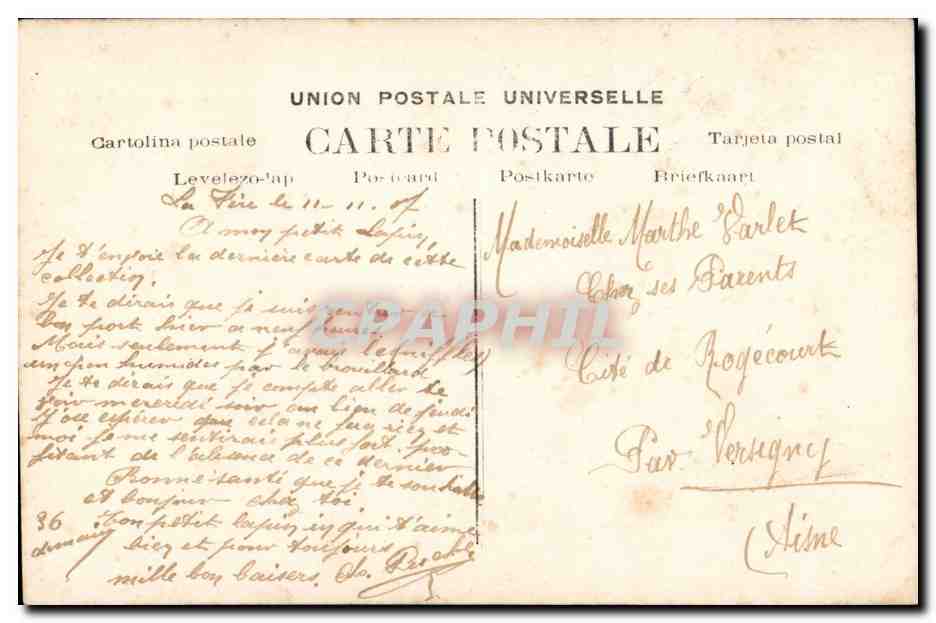 UNION POSTALE UNIVERSELLE
CARTE POSTALE
Cartolina postale
Tarjeta postal
Levelezo-lap
Postcard
Postkarte
Briefkaart
La Fère le 11-11-07
A mon petit Lapin,
Je t'envoie la dernière carte de cette
collection.
Je te dirais que je suis à
bon port hier a neuf heures
Mais seulement j'avais
humides par le brouillard
Je te dirais que je compte aller te
voir mercredi soir au lieu de jeudi
J'ose espérer que cela ne fera rien et
moi je me sentirais plus fort pro
fitant de l'absence de ce dernier
Bonne santé que je te souhaite
et bonjour chez toi.
Ton petit lapin qui t'aime
bien et pour toujours
mille bon baisers.
36
demain
CPAPHIL
Mademoiselle Marthe Varlet
Chez ses Parents
Cité de Rogécourt
Par Versigny
(Aisne